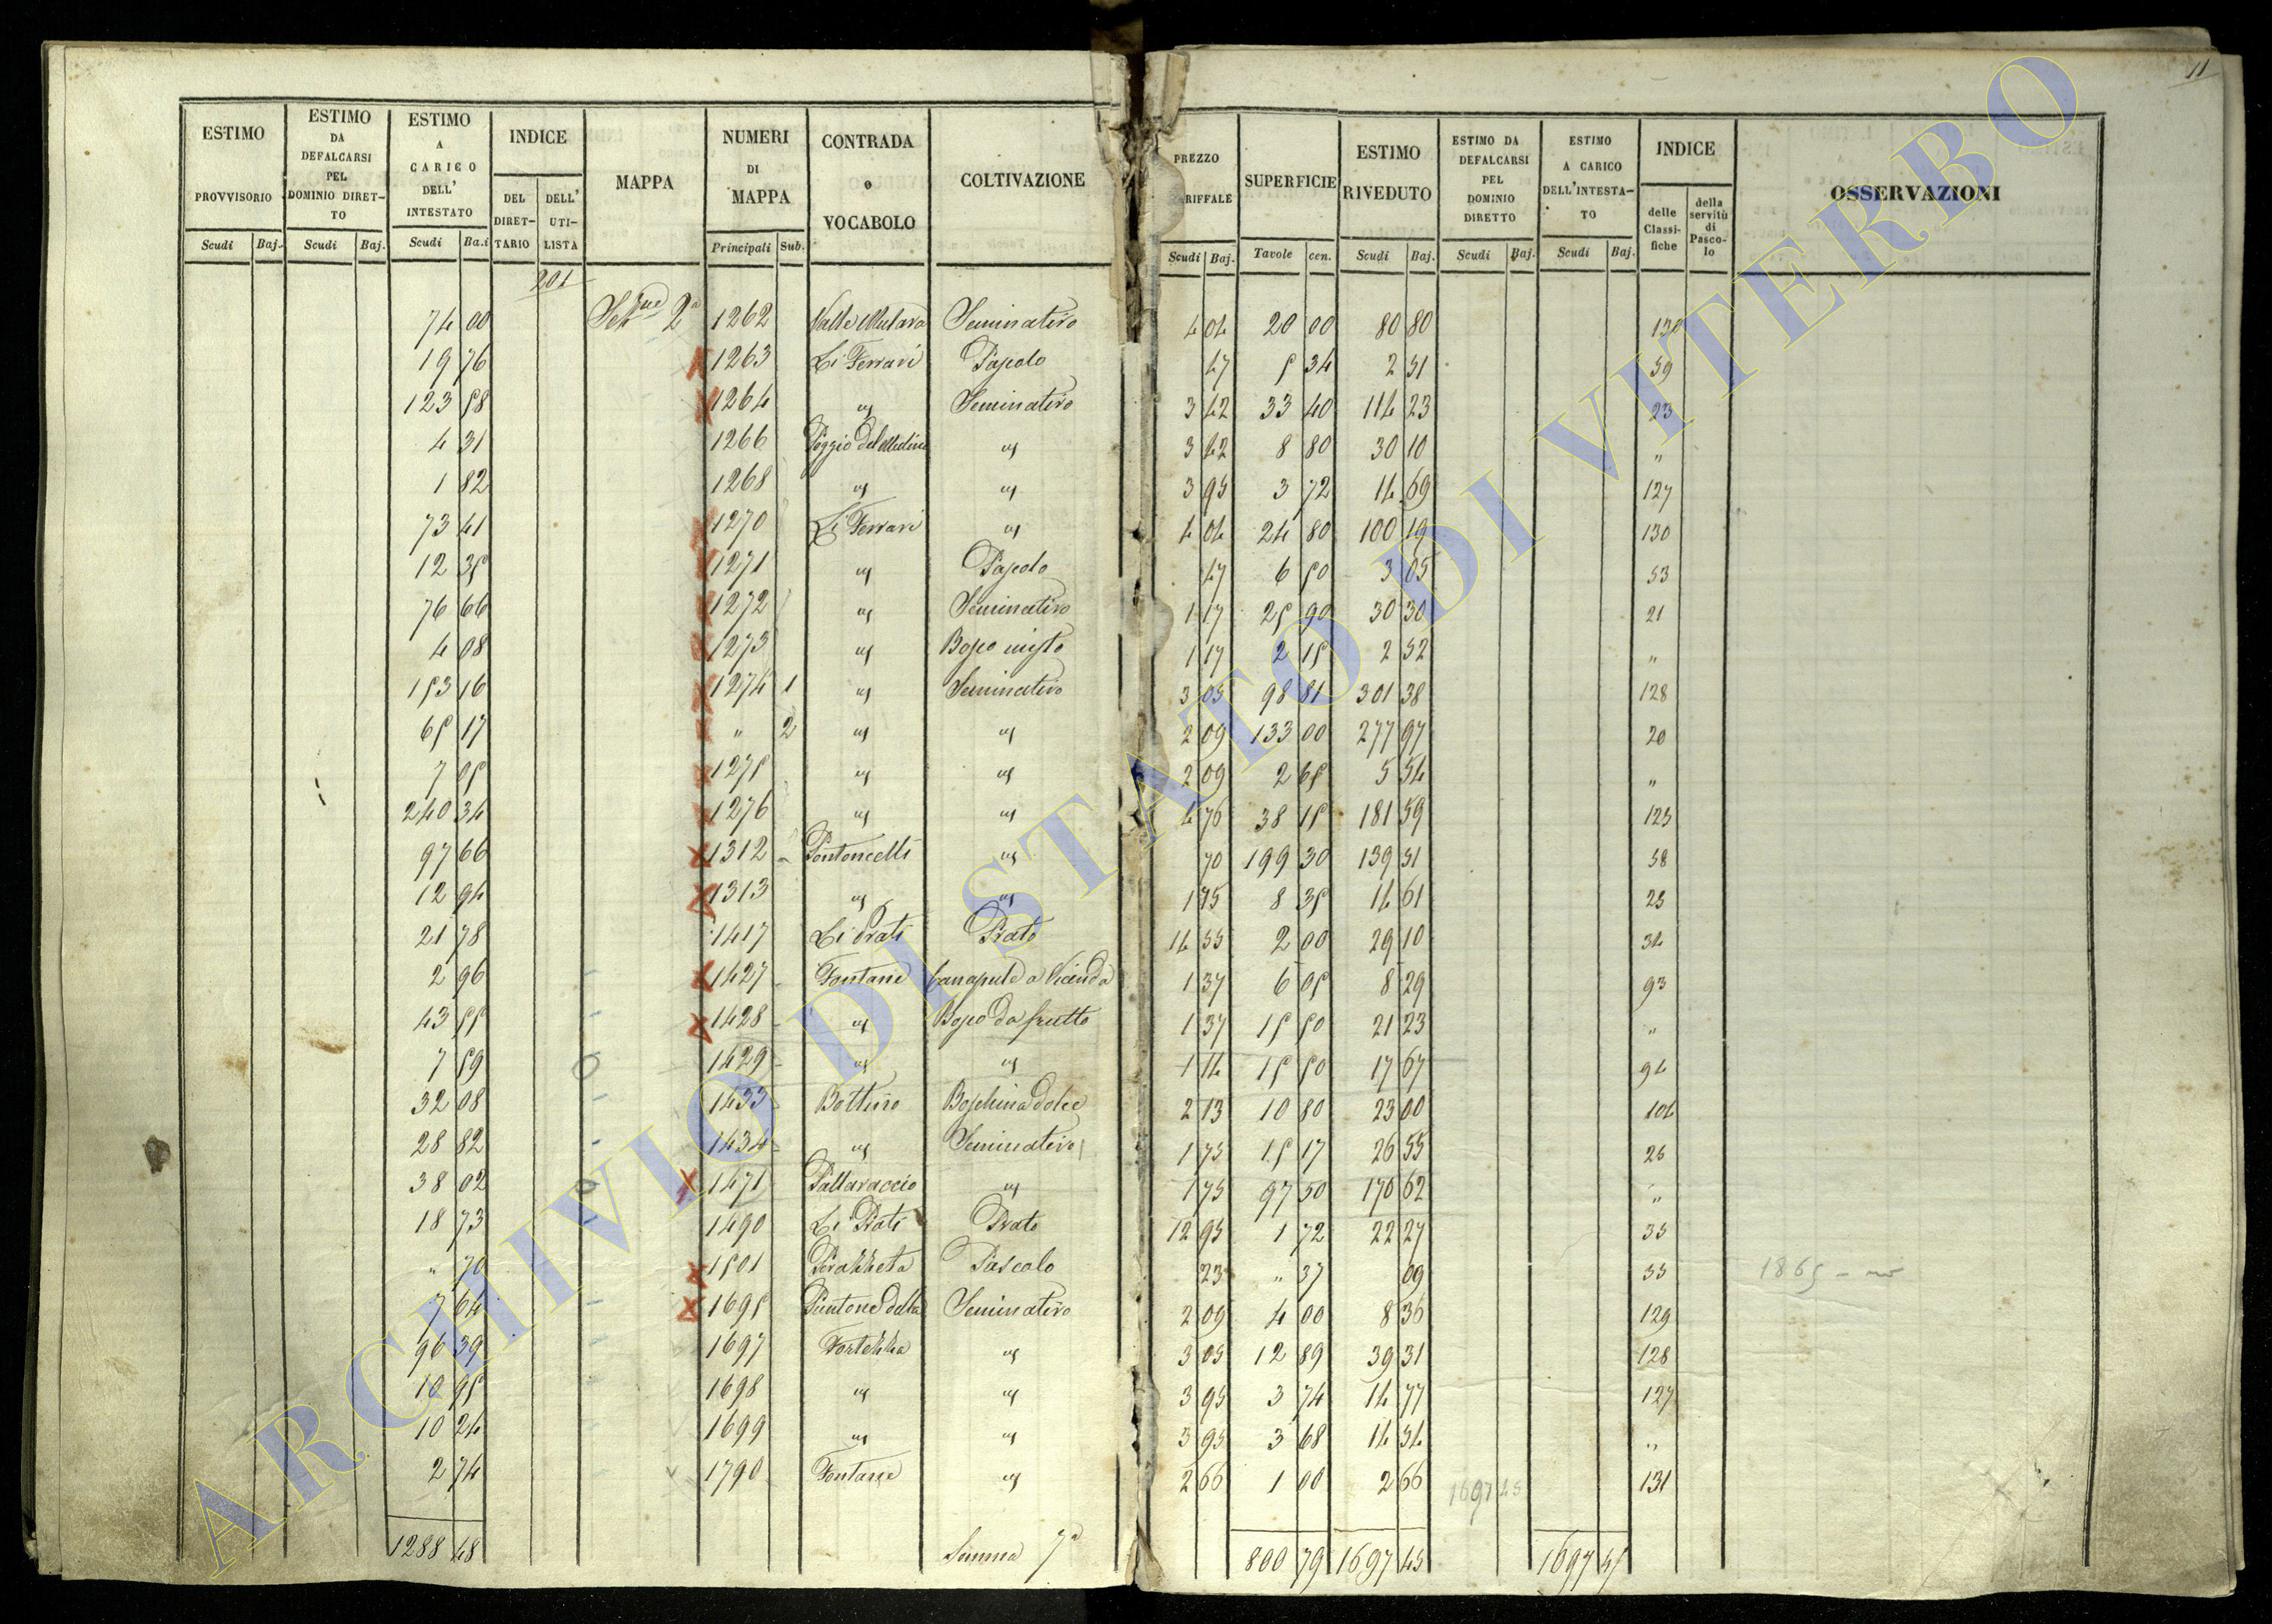 11
ESTIMO PROVVISORIO Scudi Baj.
ESTIMO DA DEFALCARSI PEL DOMINIO DIRETTO Scudi Baj.
ESTIMO A CARICO DELL' INTESTATO Scudi Ba.i
INDICE DEL DIRETTARIO DELL' UTILISTA
MAPPA
NUMERI DI MAPPA Principali Sub.
CONTRADA o VOCABOLO
COLTIVAZIONE
PREZZO RIFFALE Scudi Baj.
SUPERFICIE Tavole cen.
ESTIMO RIVEDUTO Scudi Baj.
ESTIMO DA DEFALCARSI PEL DOMINIO DIRETTO Scudi Baj.
ESTIMO A CARICO DELL'INTESTATO Scudi Baj.
INDICE delle Classifiche della servitù di Pascolo
OSSERVAZIONI
201
74 00 2a 1262 Seminativo 4 04 20 00 80 80 130
19 76 1263 Li Ferrari Pascolo 47 5 34 2 51 59
123 58 1264 " Seminativo 3 42 33 40 114 23 23
4 31 1266 Poggio del " 3 42 8 80 30 10 "
1 82 1268 " " 3 95 3 72 14 69 127
73 41 1270 Li Ferrari " 4 04 24 80 100 19 130
12 35 1271 " Pascolo 47 6 50 3 05 53
76 66 1272 " Seminativo 1 17 25 90 30 30 21
4 08 1273 " Bosco misto 1 17 2 15 2 52 "
153 16 1274 1 " Seminativo 3 05 98 81 301 38 128
65 17 " 2 " " 2 09 133 00 277 97 20
7 05 1275 " " 2 09 2 65 5 54 "
240 34 1276 " " 4 76 38 15 181 59 125
97 66 1312 Pontoncelli " 70 199 30 139 51 58
12 94 1313 " " 1 75 8 35 14 61 25
21 78 1417 Li Prati Prato 14 55 2 00 29 10 34
2 96 1427 Fontane Canapule a Vicenda 1 37 6 05 8 29 93
43 55 1428 " Bosco da frutto 1 37 15 50 21 23 "
7 59 1429 " " 1 14 15 50 17 67 94
32 08 1433 Bottino Boschina dolce 2 13 10 80 23 00 104
28 82 1434 " Seminativo 1 75 15 17 26 55 26
38 02 1471 Pallaraccio " 1 75 97 50 170 62 "
18 73 1490 Li Prati Prato 12 95 1 72 22 27 35
" 70 1501 Pascolo 23 " 37 09 55 1865
7 64 1695 Puntone della Seminativo 2 09 4 00 8 36 129
96 39 1697 Fortezza " 3 05 12 89 39 31 128
10 95 1698 " " 3 95 3 74 14 77 127
10 24 1699 " " 3 95 3 68 14 54 "
2 74 1790 Fontane " 2 66 1 00 2 66 1697 45 131
1288 48 Somma 7a 800 79 1697 45 1697 45
ARCHIVIO DI STATO DI VITERBO